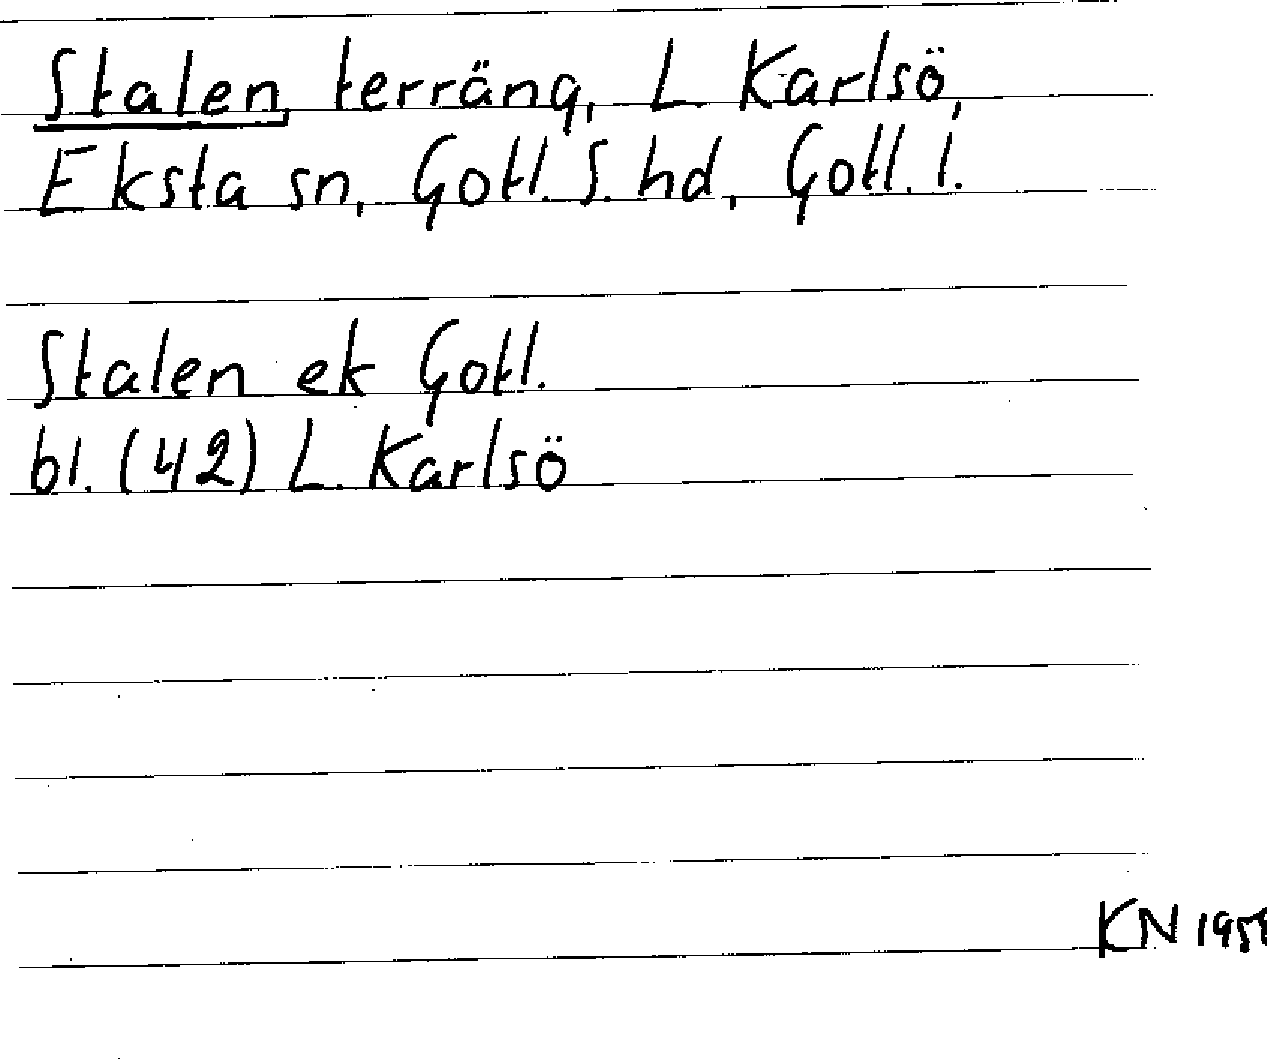 Stalen, terräng, L. Karlsö,
Eksta sn, Gotl. S. hd, Gotl. l.
Stalen ek Gotl.
bl. (42) L. Karlsö
KN